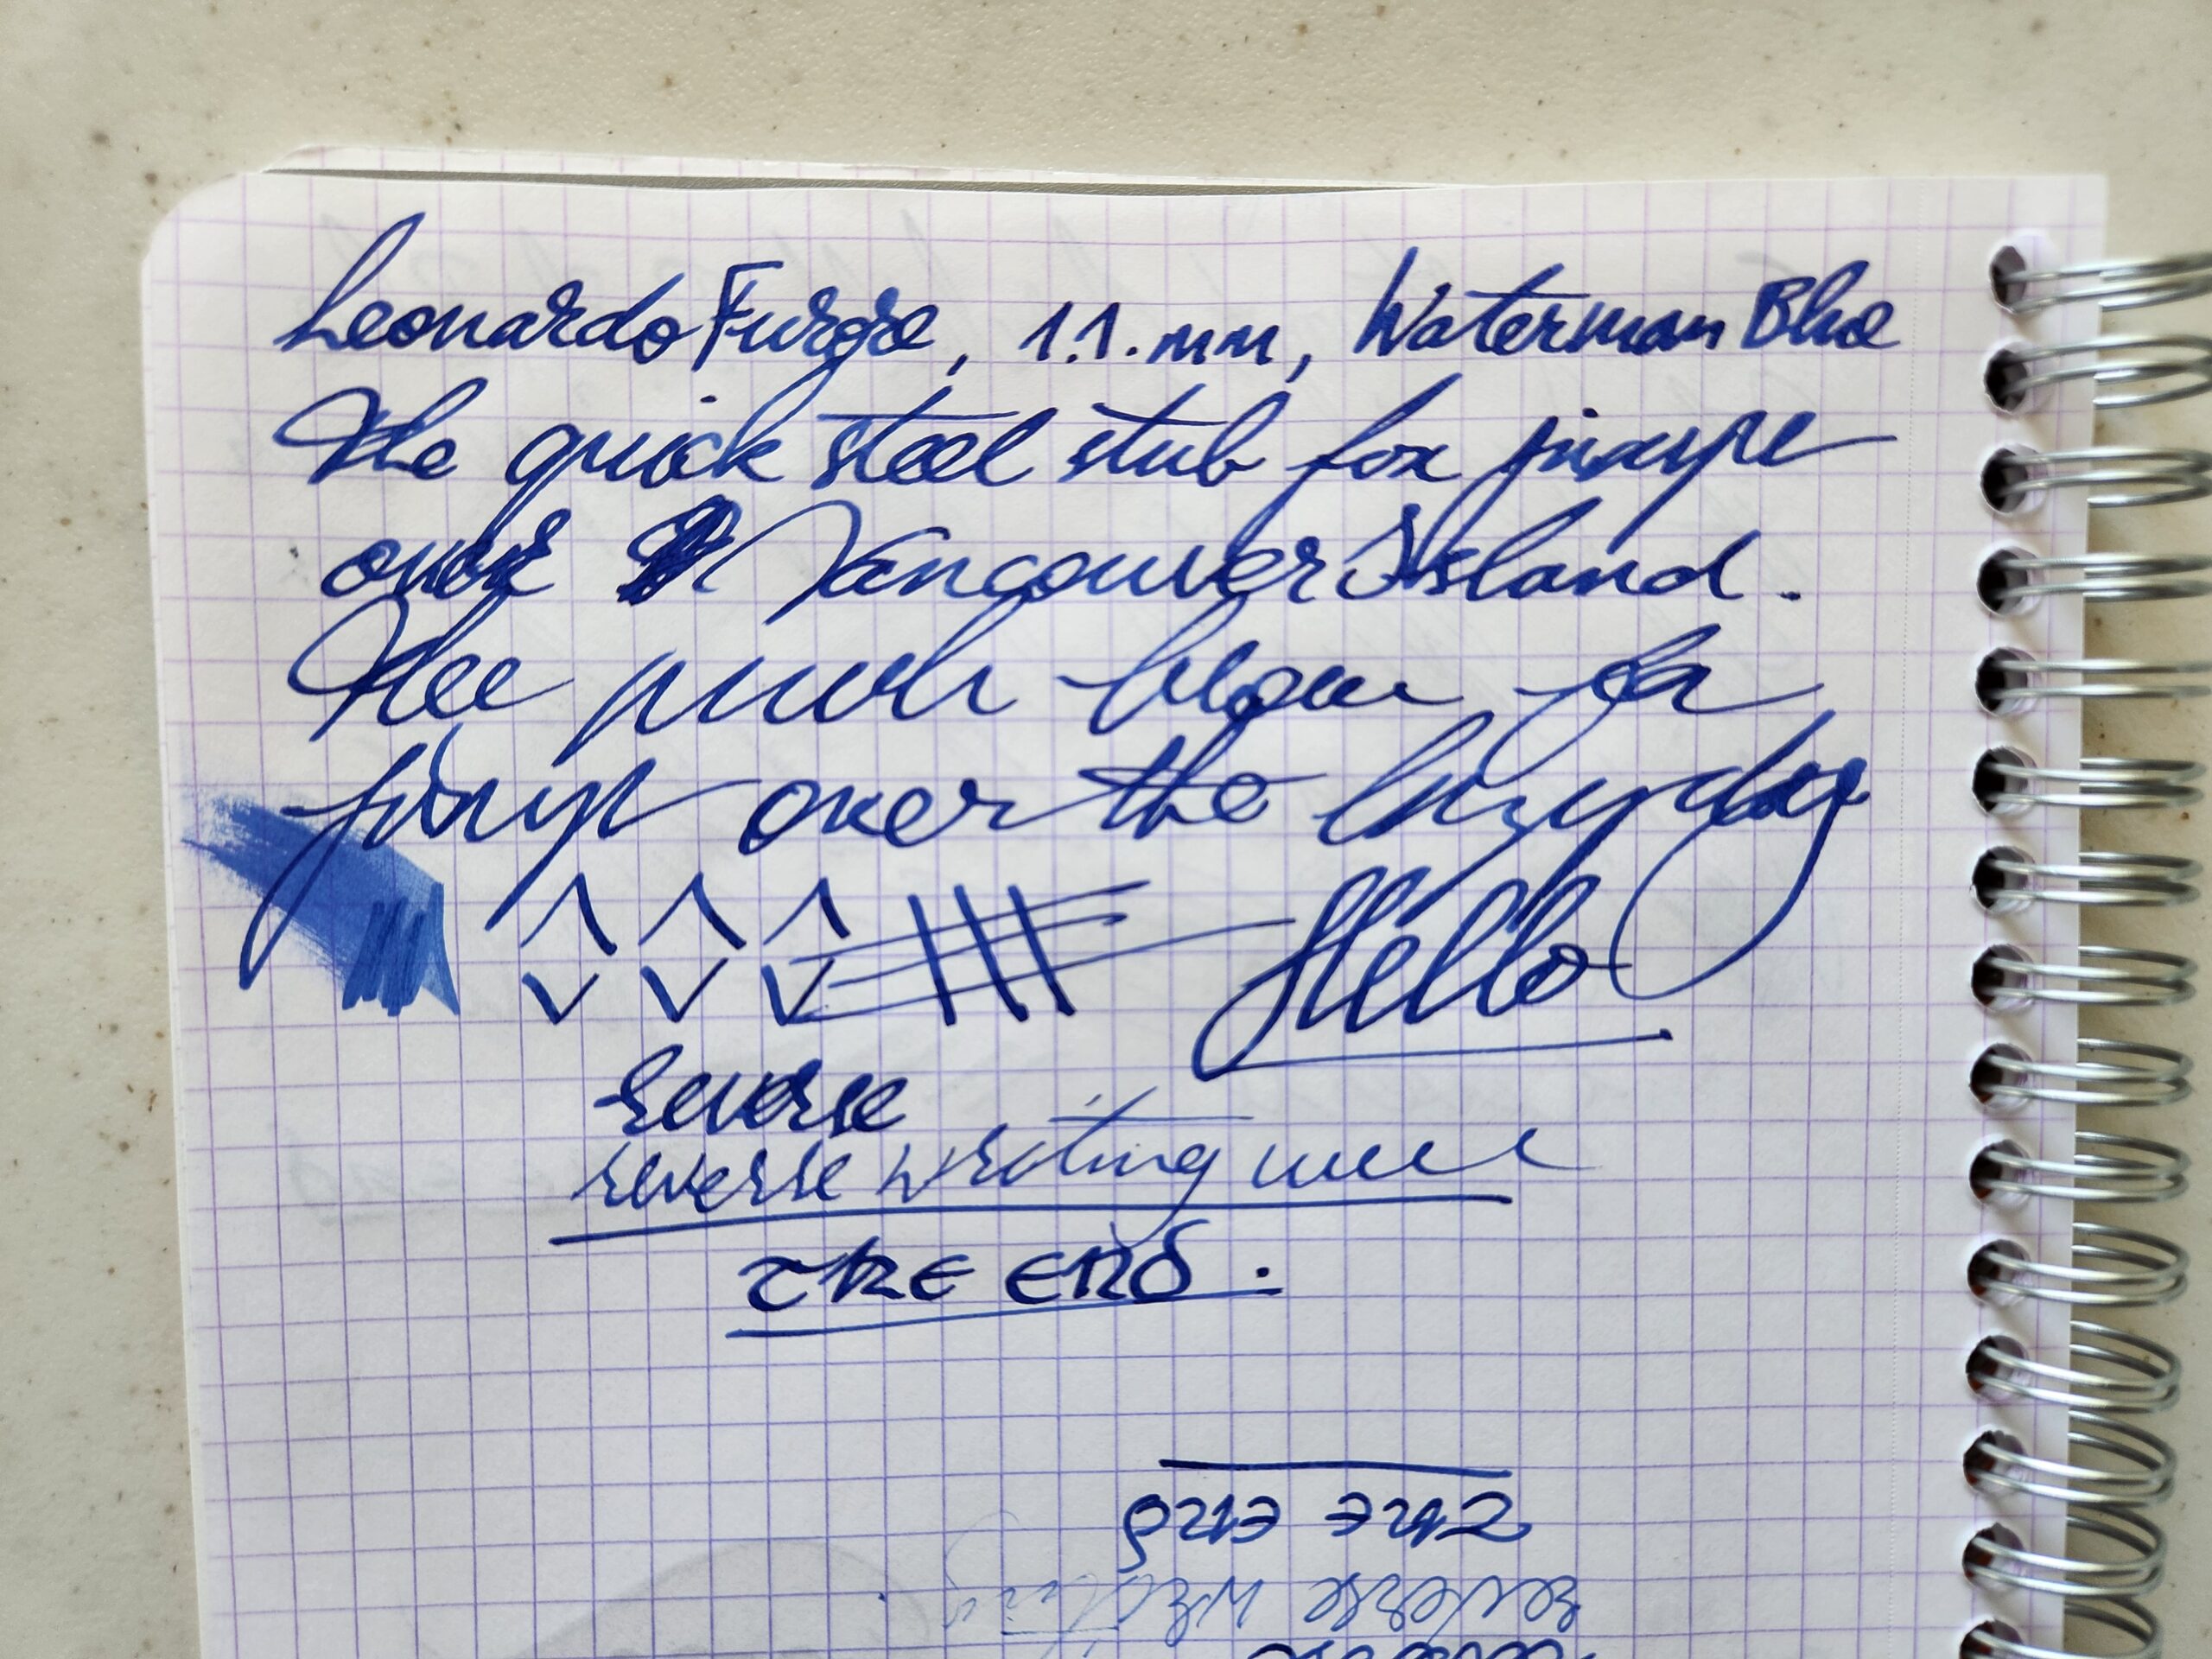 Leonardo Furore, 1.1.mm, Waterman Blue
The quick steel stub fox jump
over Vancouver Island.
The quick brown fox
jump over the lazy dog
Hello
reverse
reverse writing
the end.
the end
reverse writing